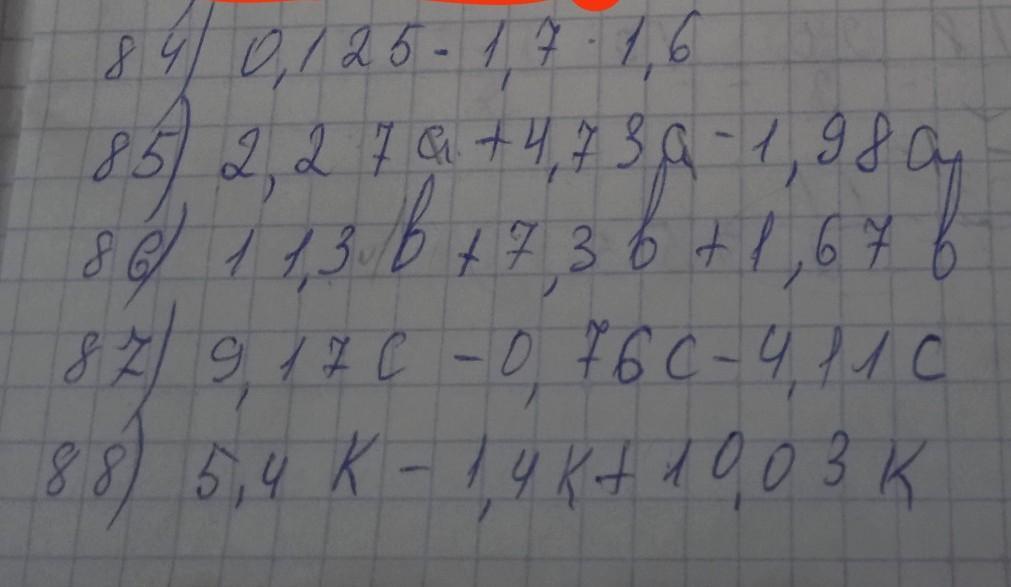 84) 0,125 - 1,7 · 1,6
85) 2,27a + 4,73a - 1,98a
86) 11,3b + 7,3b + 1,67b
87) 9,17c - 0,76c - 4,11c
88) 5,4k - 1,4k + 10,03k